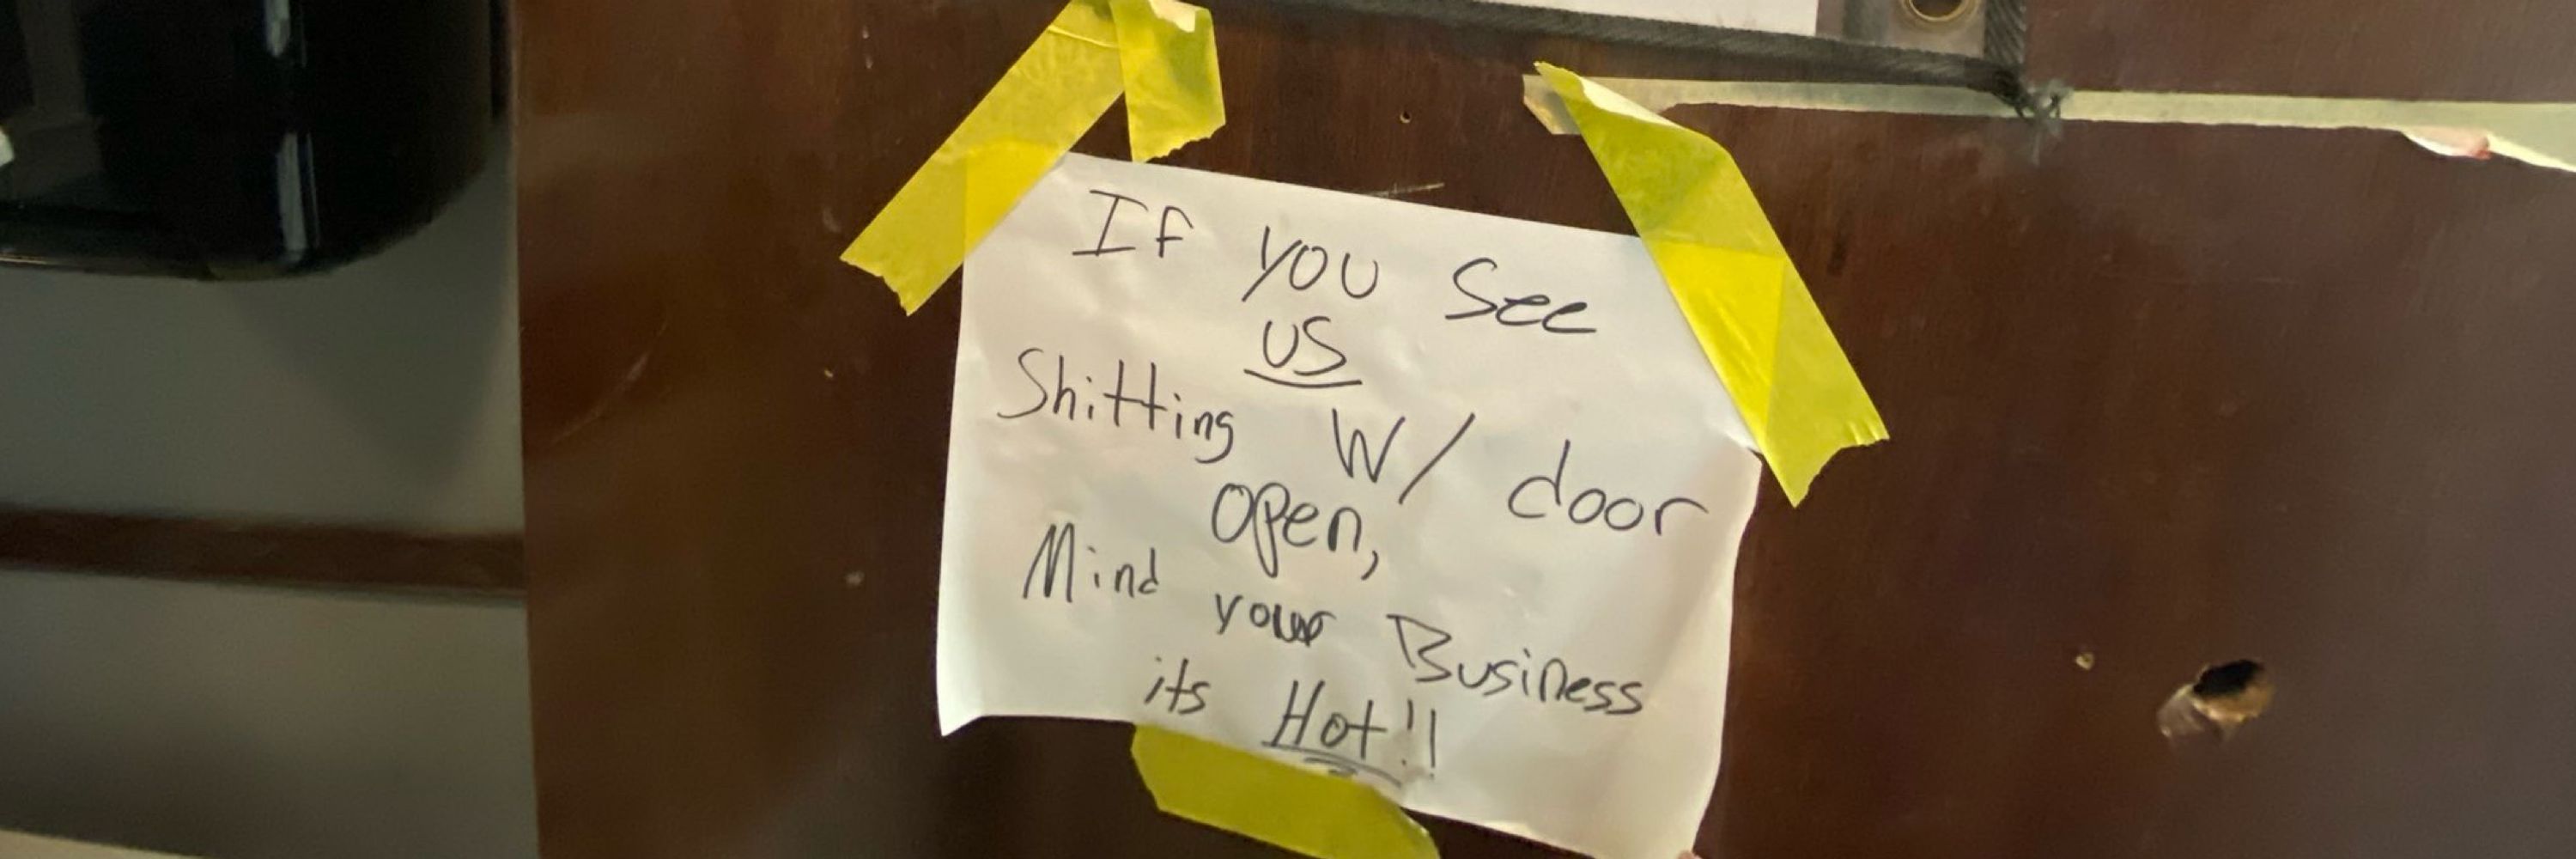 If you see
us
Shitting w/ door
open,
Mind your Business
its Hot!!